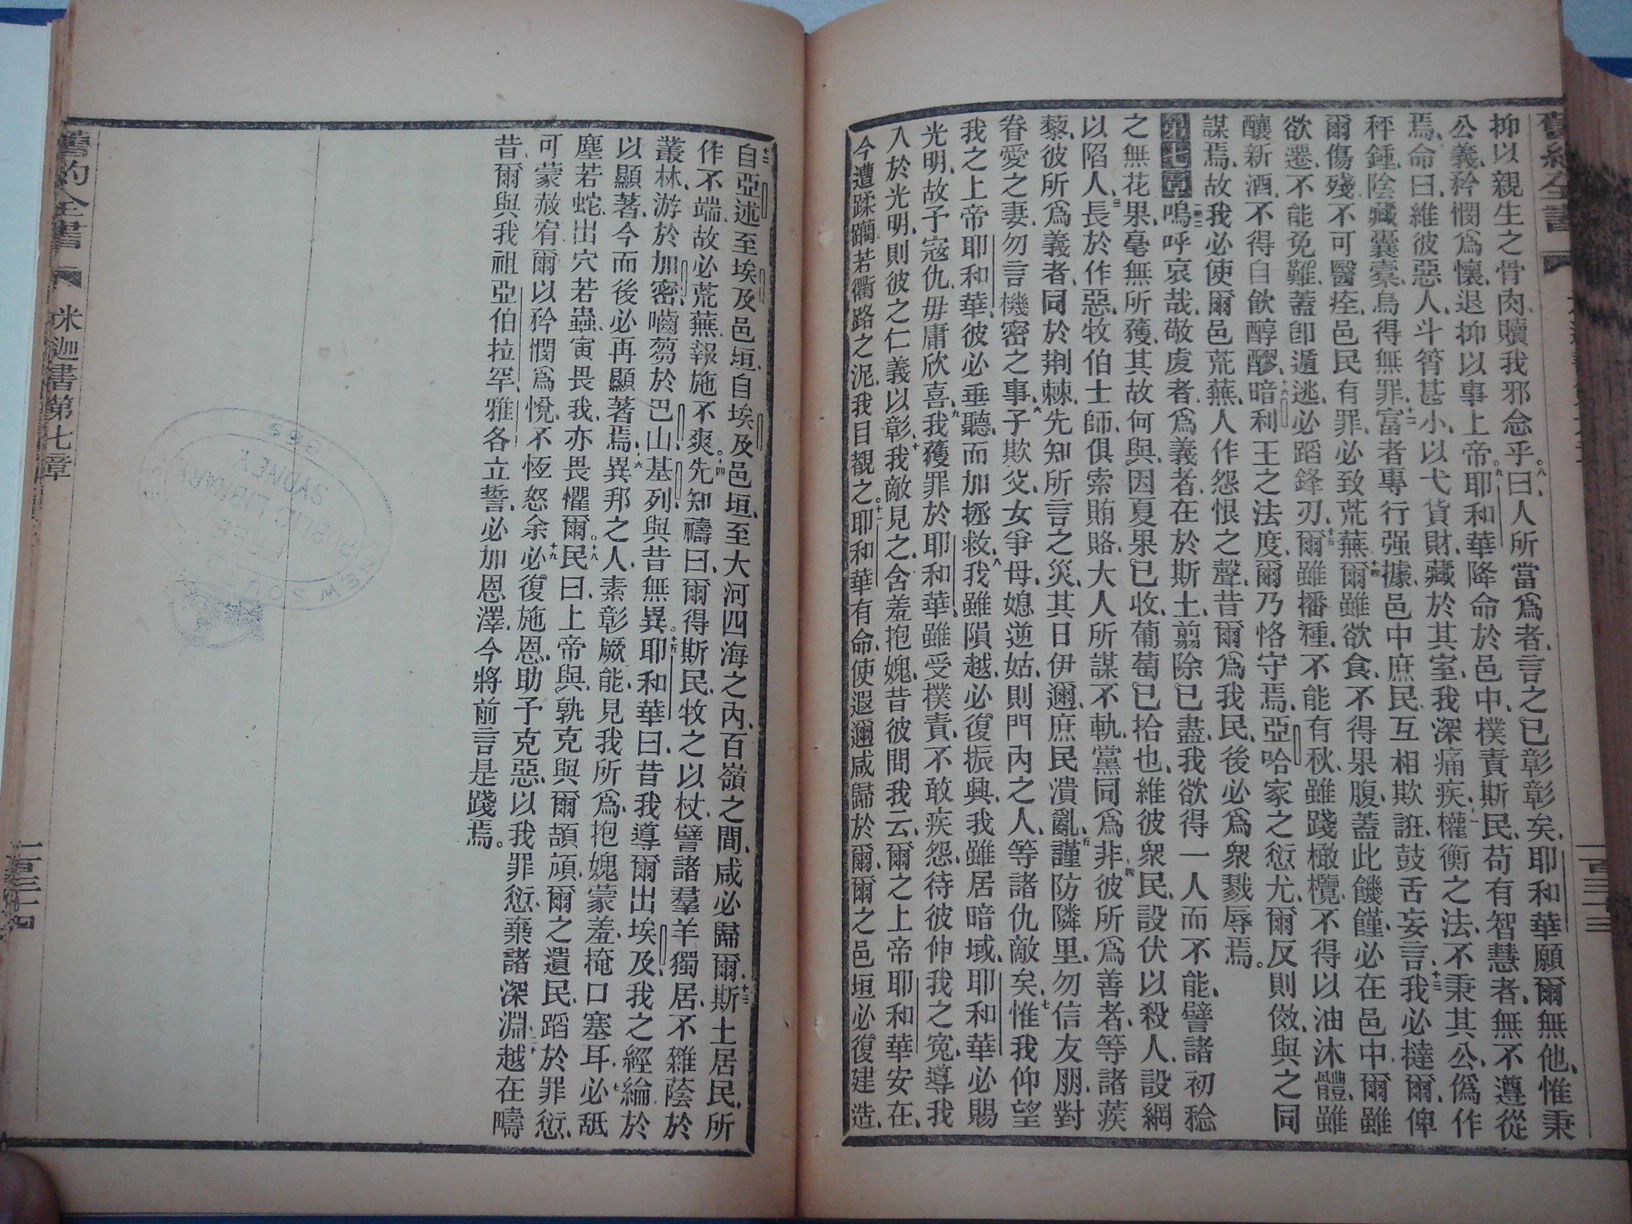 抑以親生之骨肉、贖我邪念乎。八曰、人所當爲者、言之已彰彰矣、耶和華願爾無他、惟秉
公義、矜憫爲懷、退抑以事上帝。九耶和華降命於邑中、樸責斯民、苟有智慧者、無不遵從
焉、命曰、維彼惡人、斗筲甚小、以弋貨財、藏於其室、我深痛疾、權衡之法、不秉其公、僞作
秤錘、陰藏囊橐、烏得無罪、十二富者專行强據、邑中庶民、互相欺誑、鼓舌妄言、十三我必撻爾、俾
爾傷殘、不可醫痊、邑民有罪、必致荒蕪、十四爾雖欲食、不得果腹、蓋此饑饉、必在邑中、爾雖
欲遷、不能免難、蓋卽遁逃、必蹈鋒刃、十五爾雖播種、不能有秋、雖踐橄欖、不得以油沐體、雖
釀新酒、不得自飲醇醪、十六暗利王之法度、爾乃恪守焉、亞哈家之愆尤、爾反則傚、與之同
謀焉、故我必使爾邑荒蕪、人作怨恨之聲、昔爾爲我民、後必爲衆戮辱焉。
第七章 嗚呼哀哉、敬虔者、爲義者、在於斯土、翦除已盡、我欲得一人而不能、譬諸初稔
之無花果、毫無所獲、其故何與、因夏果已收、葡萄已拾也、維彼衆民、設伏以殺人、設網
以陷人、三長於作惡、牧伯士師、俱索賄賂、大人所謀不軌、黨同爲非、四彼所爲善者、等諸蒺
藜、彼所爲義者、同於荆棘、先知所言之災、其日伊邇、庶民潰亂、五謹防隣里、勿信友朋、對
眷愛之妻、勿言機密之事、六子欺父、女爭母、媳逆姑、則門內之人、等諸仇敵矣、七惟我仰望
我之上帝耶和華、彼必垂聽、而加拯救、八我雖隕越、必復振興、我雖居暗域、耶和華必賜
光明、故予寇仇、毋庸欣喜、九我獲罪於耶和華、雖受樸責、不敢疾怨、待彼伸我之寃、導我
入於光明、則彼之仁義以彰、十我敵見之、含羞抱媿、昔彼間我云、爾之上帝耶和華安在、
今遭蹂躪、若衢路之泥、我目覩之。十一耶和華有命、使遐邇咸歸於爾、爾之邑垣必復建造、
十二自亞述至埃及邑垣、自埃及邑垣、至大河四海之內、百嶺之間、咸必歸爾、十三斯土居民、所
作不端、故必荒蕪、報施不爽。十四先知禱曰、爾得斯民、牧之以杖、譬諸羣羊獨居、不雜蔭於
叢林、游於加密、嚙芻於巴山基列、與昔無異。十五耶和華曰、昔我導爾出埃及、我之經綸、於
以顯著、今而後必再顯著焉、十六異邦之人、素彰厥能、見我所爲、抱媿蒙羞、掩口塞耳、必舐
塵若蛇、出穴若蟲、寅畏我、亦畏懼爾。十八民曰、上帝與、孰克與爾頡頏、爾之遺民、蹈於罪愆、
可蒙赦宥、爾以矜憫爲悅、不恆怒余、十九必復施恩、助予克惡、以我罪愆、棄諸深淵、二十越在疇
昔、爾與我祖亞伯拉罕、雅各立誓、必加恩澤、今將前言是踐焉。
舊約全書 米迦書第七章
一百三十四